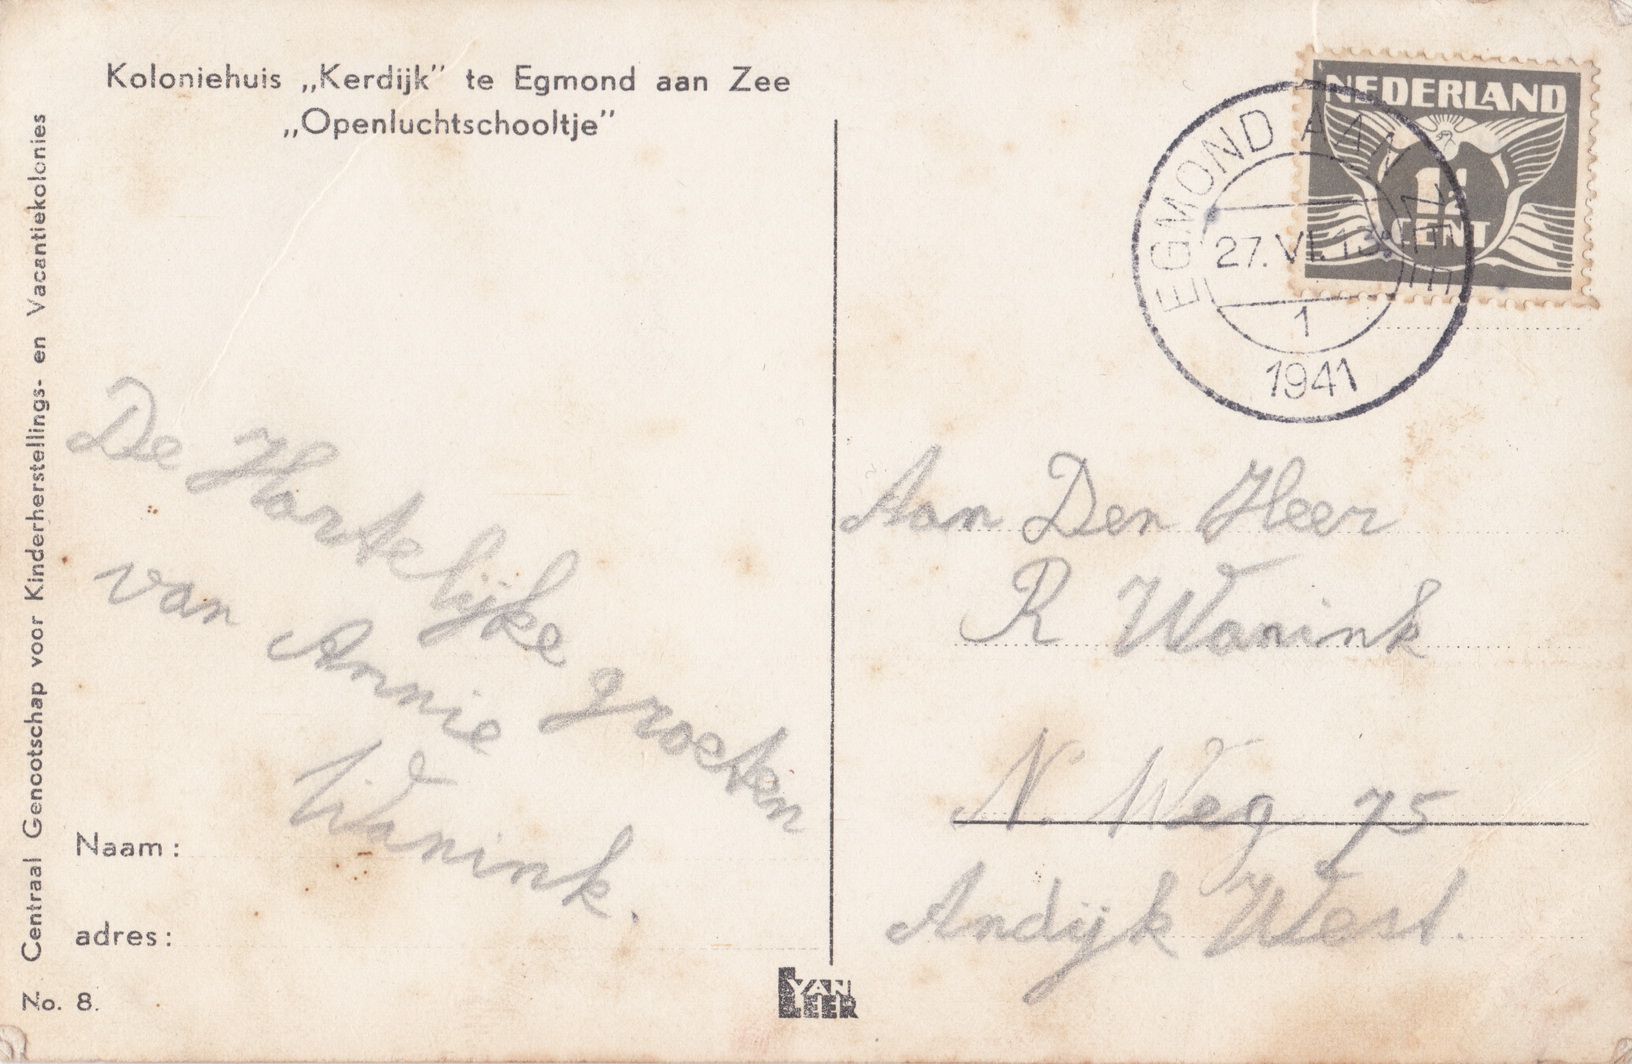 Koloniehuis „Kerdijk" te Egmond aan Zee
„Openluchtschooltje"
Centraal Genootschap voor Kinderherstellings- en Vacantiekolonies
De Hartelijke groeten
van Annie
Wanink.
Naam :
adres :
No. 8.
VAN LEER
NEDERLAND
1½
CENT
EGMOND AAN ZEE
27.VI.13
1
1941
Aan Den Heer
R Wanink
N. Weg 75
Andijk West.